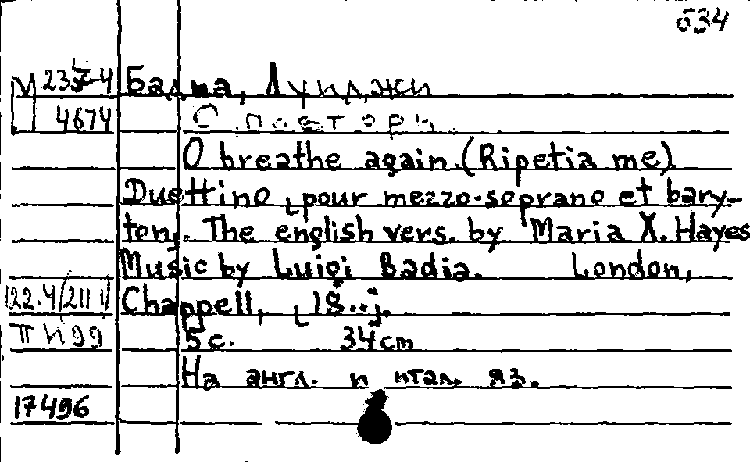 634
М 237-4 Бадиа, Луиджи
4674 С повтори.
O breathe again. (Ripetia me)
Duettino [pour mezzo-soprano et bary-
ton]. The english vers. by Maria X. Hayes
Music by Luigi Badia. London,
122.4(211) Chappell, [18..].
5 с. 34cm
На англ. и итал. яз.
17496